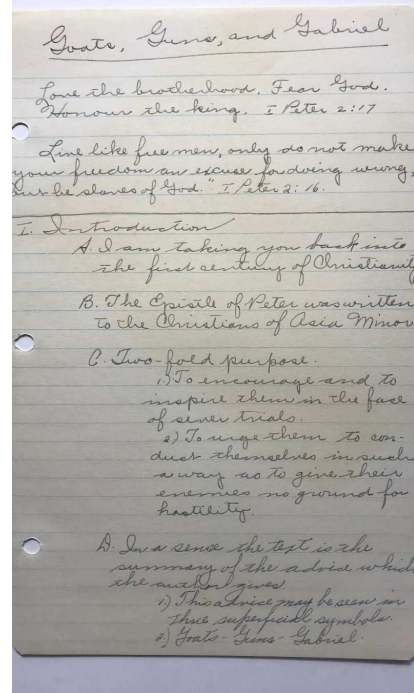 Goats, Guns, and Gabriel
Love the brotherhood. Fear God.
Honour the king. I Peter 2:17
Live like free men, only do not make
your freedom an excuse for doing wrong,
but be slaves of God." I Peter 2:16.
I. Introduction
A. I am taking you back into
the first century of Christianity
B. The Epistle of Peter was written
to the Christians of Asia Minor
C. Two-fold purpose.
1.) To encourage and to
inspire them in the face
of sever trials.
2) To urge them to con-
duct themselves in such
a way as to give their
enemies no ground for
hostility.
D. In a sense the text is the
summary of the advice which
the author gives
1.) This advice may be seen in
three superficial symbols.
2.) Goats - Guns - Gabriel.